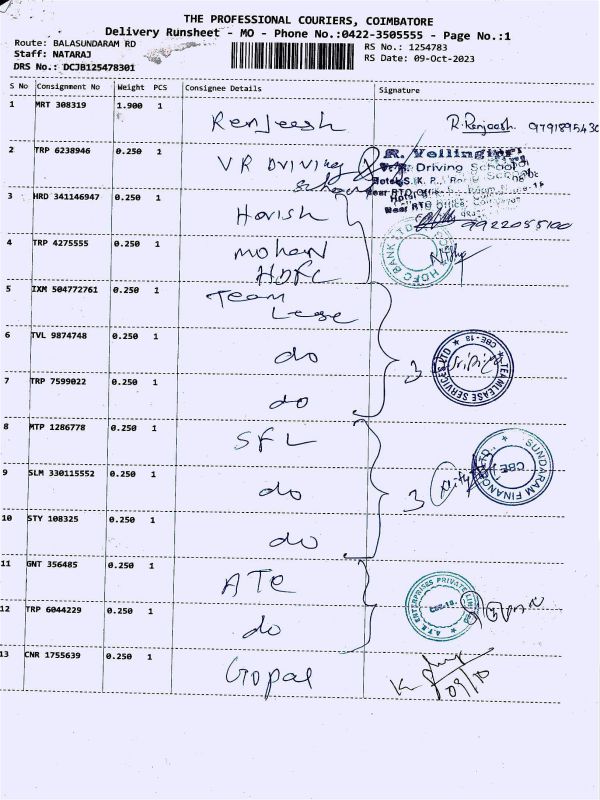 THE PROFESSIONAL COURIERS, COIMBATORE
Delivery Runsheet - MO - Phone No.:0422-3505555 - Page No.:1
Route: BALASUNDARAM RD
Staff: NATARAJ
DRS No.: DCJB125478301
RS No.: 1254783
RS Date: 09-Oct-2023
S No Consignment No Weight PCS Consignee Details Signature
1 MRT 308319 1.900 1 Renjeesh R. Renjeesh. 9791895430
2 TRP 6238946 0.250 1 VR DRIVING School R. Vellingiri
Driving School
3 HRD 341146947 0.250 1 Harish 9922055100
4 TRP 4275555 0.250 1 Mohan HDFC HDFC BANK LTD
5 IXM 504772761 0.250 1 Team Lease
6 TVL 9874748 0.250 1 do 3 TEAMLEASE SERVICES LTD CBE-18
7 TRP 7599022 0.250 1 do
8 MTP 1286778 0.250 1 SFL
9 SLM 330115552 0.250 1 do 3 SUNDARAM FINANCE LTD., CBE
10 STY 108325 0.250 1 do
11 GNT 356485 0.250 1 ATE A.T.E. ENTERPRISES PRIVATE LIMITED CBE-18
12 TRP 6044229 0.250 1 do
13 CNR 1755639 0.250 1 Gopal 09/10